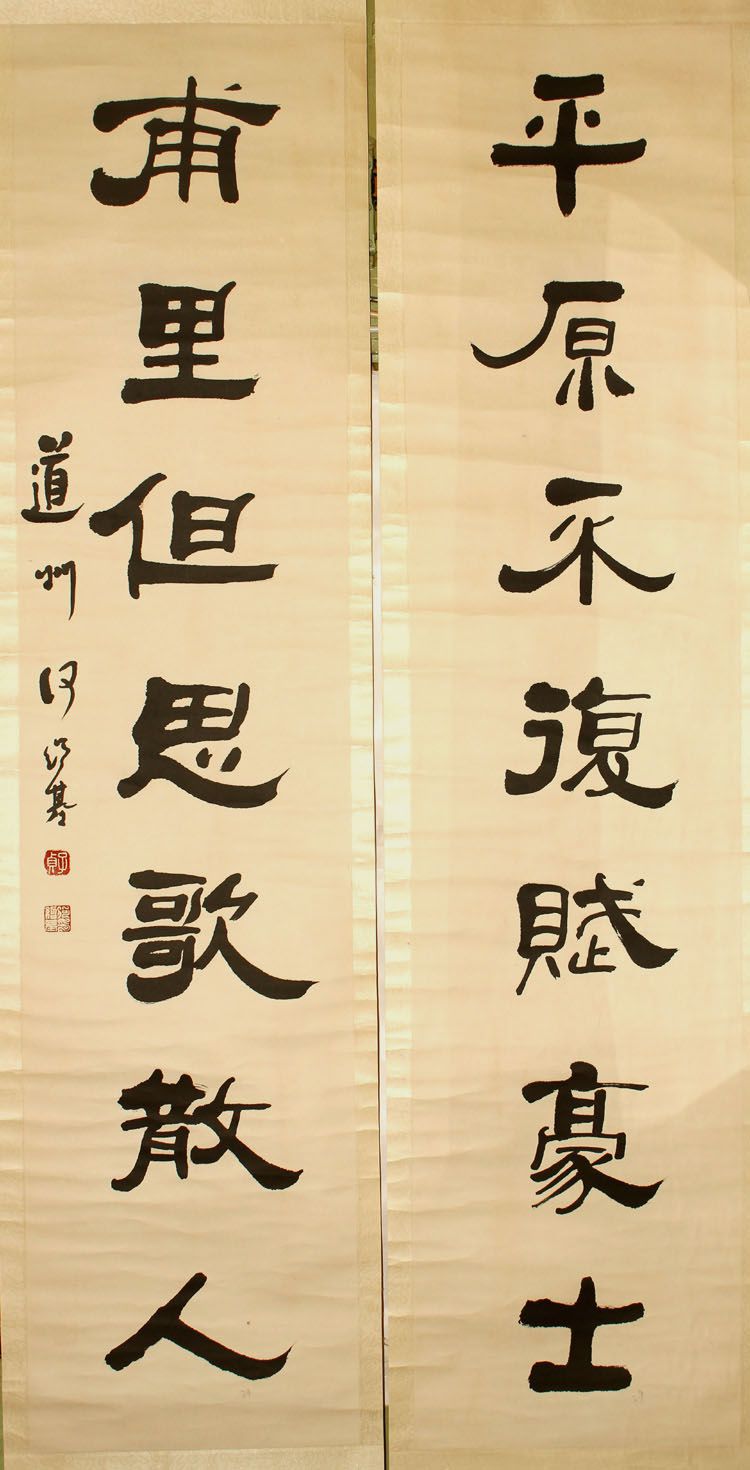 平原不復賦豪士
甫里但思歌散人
道州何紹基
子貞